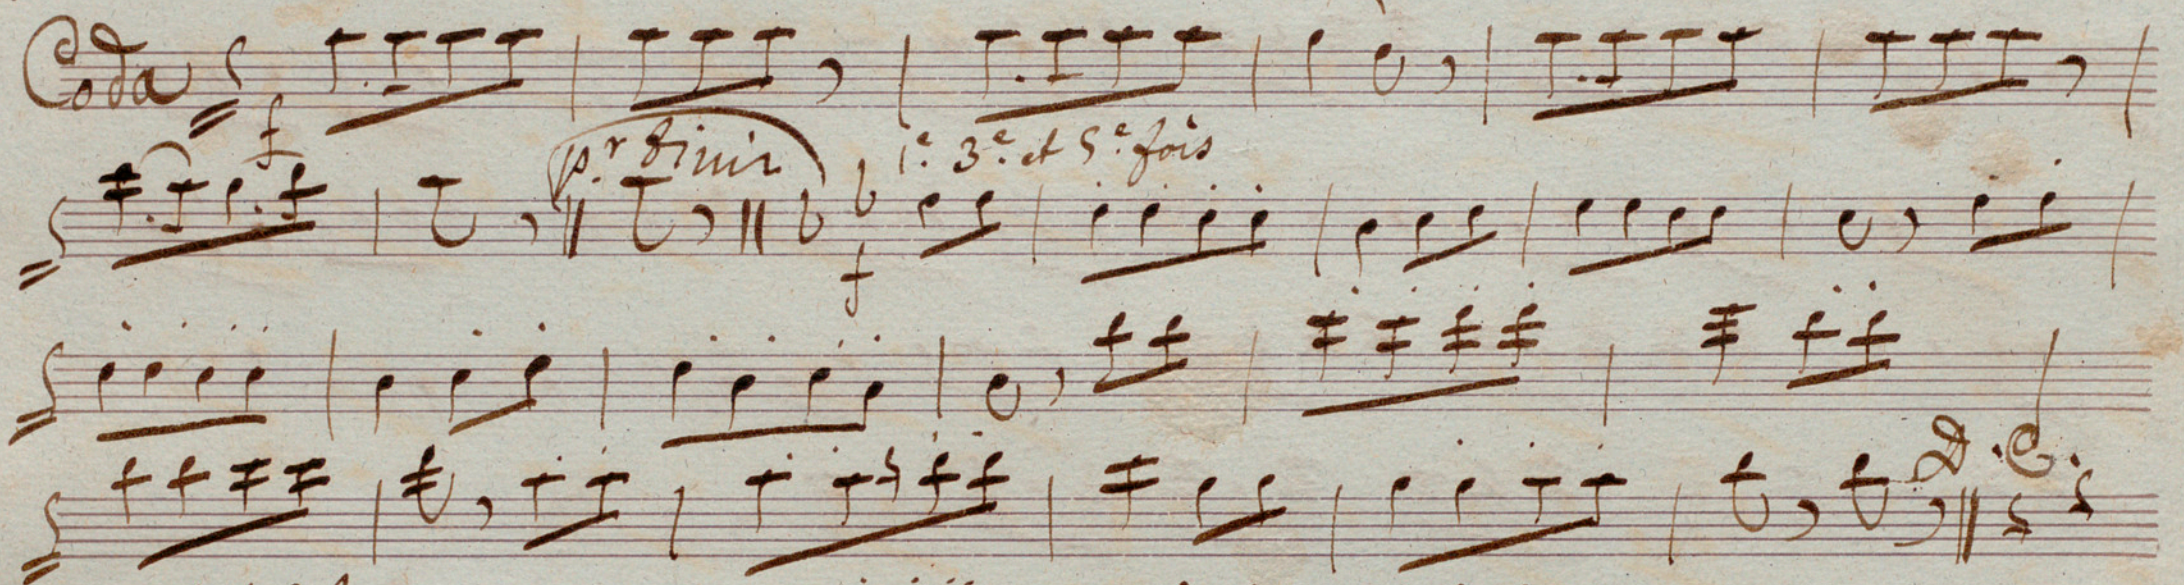 Coda
f
p.r finir 1.e 3.e et 5.e fois
f
D.C.